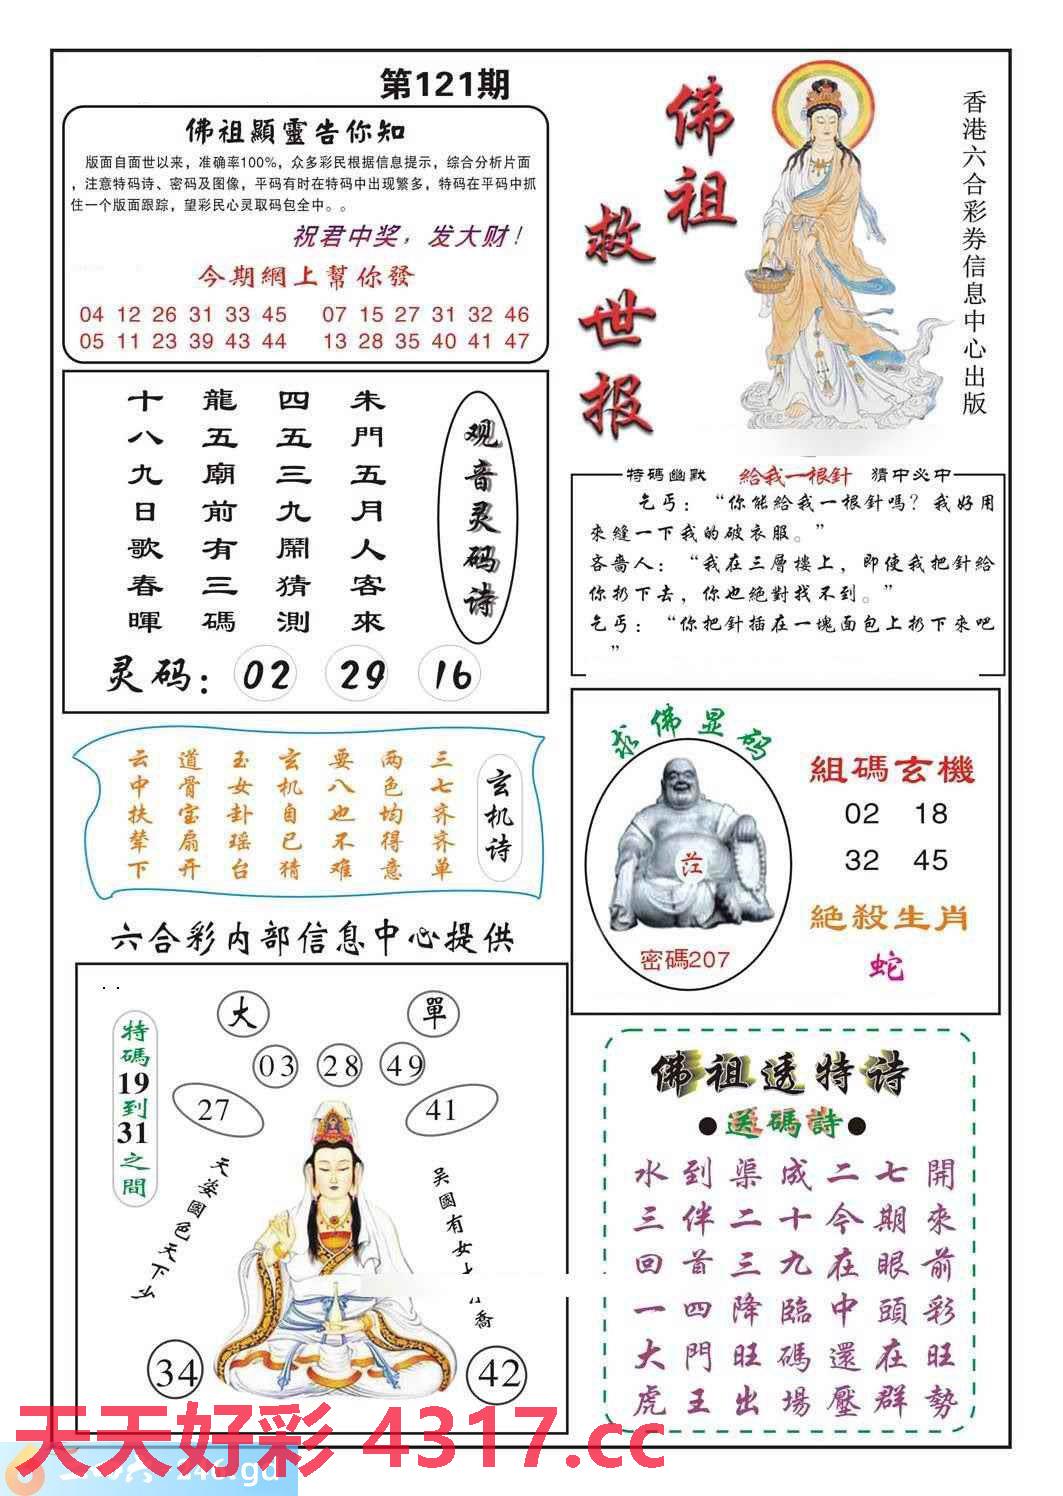 第121期
佛祖顯靈告你知
版面自面世以来，准确率100%，众多彩民根据信息提示，综合分析片面
，注意特码诗、密码及图像，平码有时在特码中出现繁多，特码在平码中抓
住一个版面跟踪，望彩民心灵取码包全中。。
祝君中奖，发大财！
今期網上幫你發
04 12 26 31 33 45 07 15 27 31 32 46
05 11 23 39 43 44 13 28 35 40 41 47
佛祖
救世报
香港六合彩券信息中心出版
观音灵码诗
朱門五月人客來
四五三九鬧猜測
龍五廟前有三碼
十八九日歌春暉
灵码：02 29 16
特碼幽默 給我一根針 猜中必中
乞丐：“你能給我一根針嗎？我好用
來縫一下我的破衣服。”
吝嗇人：“我在三層樓上，即使我把針給
你扔下去，你也絕對找不到。”
乞丐：“你把針插在一塊面包上扔下來吧
”
玄机诗
三七齐齐单
两色均得意
要八也不难
玄机自已猜
玉女卦瑶台
道骨宝扇开
云中扶辇下
求佛显码
密碼207
組碼玄機
02 18
32 45
絕殺生肖
蛇
六合彩内部信息中心提供
大 單
03 28 49
27 41
特碼19到31之間
天姿國色天下么
吴國有女
喬
34 42
佛祖透特诗
●送碼詩●
水到渠成二七開
三伴二十今期來
回首三九在眼前
一四降臨中頭彩
大門旺碼還在旺
虎王出場壓群勢
天天好彩 4317.cc